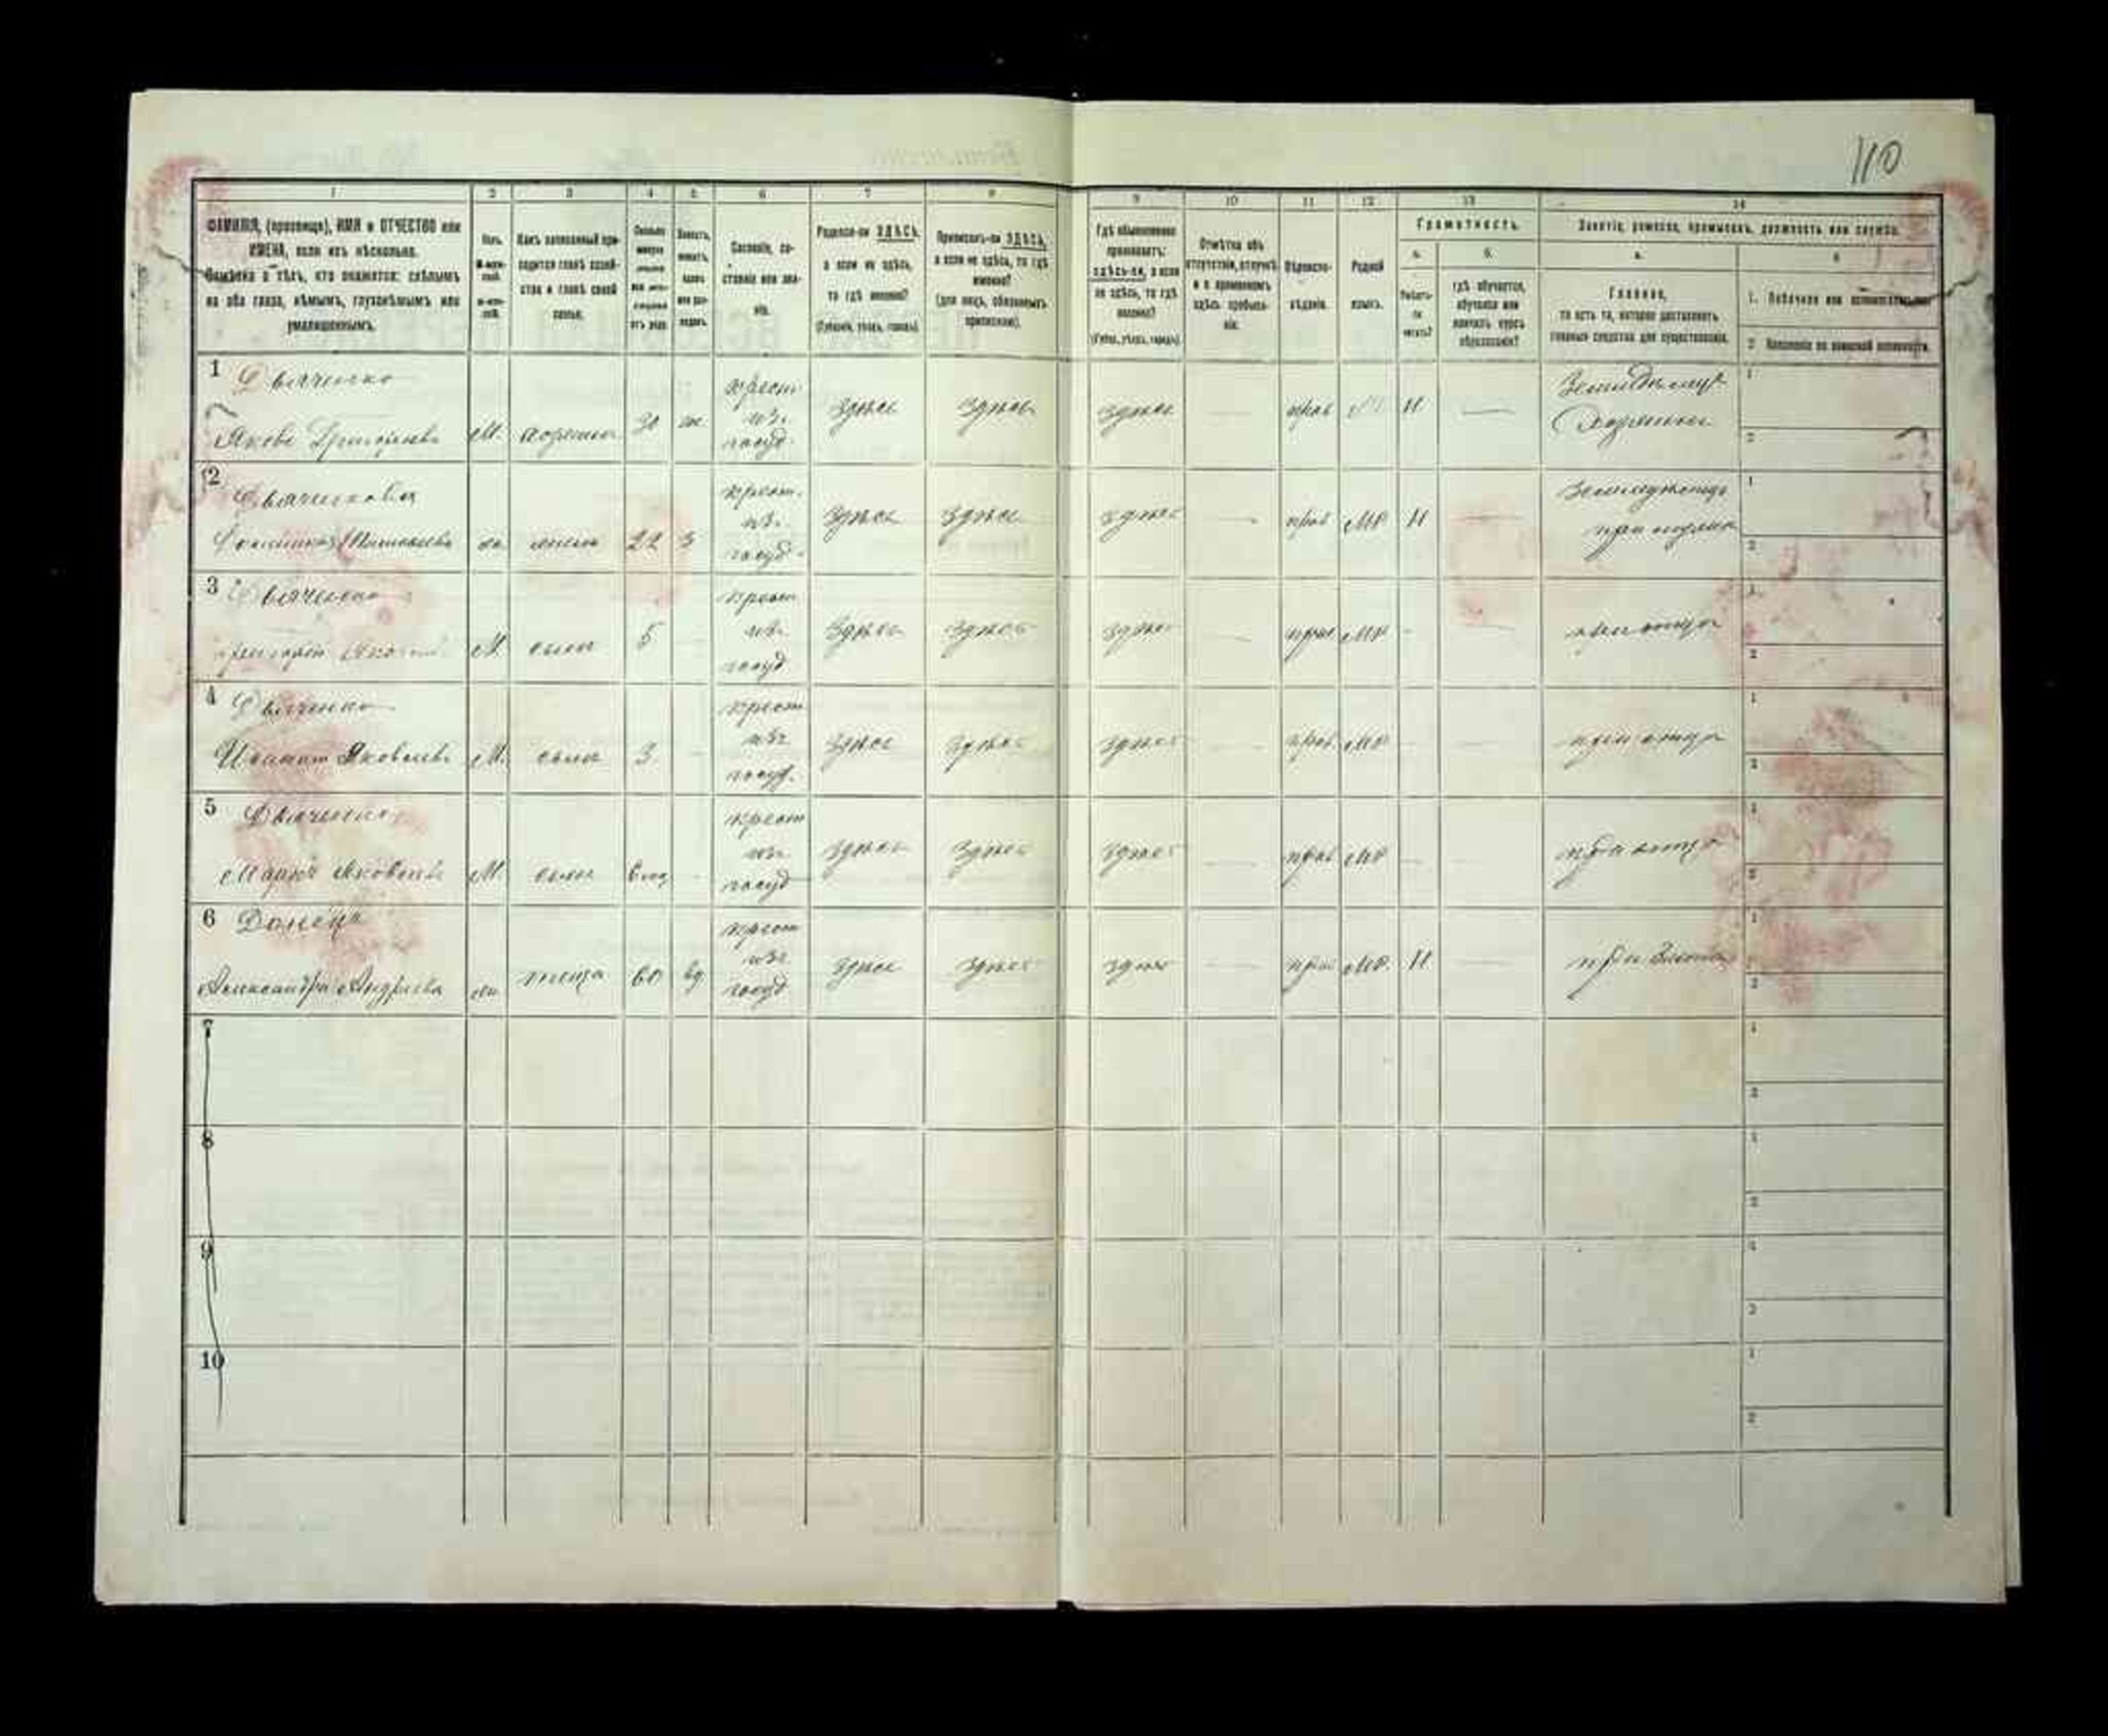 110
1 2 3 4 5 6 7 8 9 10 11 12 13 14
ФАМИЛІЯ, (прозвище), ИМЯ и ОТЧЕСТВО или
ИМЕНА, если ихъ нѣсколько.
Отмѣтка о тѣхъ, кто окажется: слѣпымъ
на оба глаза, нѣмымъ, глухонѣмымъ или
умалишеннымъ.
Полъ.
Какъ записанный при-
ходится главѣ хозяй-
ства и главѣ своей
семьи.
Сословіе, со-
стояніе или зва-
ніе.
Родился-ли ЗДѢСЬ,
а если не здѣсь,
то гдѣ именно?
(Губернія, уѣздъ, городъ).
Приписанъ-ли ЗДѢСЬ,
а если не здѣсь, то гдѣ
именно?
(для лицъ, обязанныхъ
припискою).
Гдѣ обыкновенно
проживаетъ:
здѣсь-ли, а если
не здѣсь, то гдѣ
именно?
(Губер., уѣздъ, городъ).
Отмѣтка объ
отсутствіи, отлучкѣ
и о временномъ
здѣсь пребыва-
ніи.
Вѣроиспо-
вѣданіе.
Родной
языкъ.
Грамотность.
а. б.
Умѣетъ-
ли
читать?
гдѣ обучается,
обучался или
кончилъ курсъ
образованія?
Занятіе, ремесло, промыселъ, должность или служба.
а. б
Главное,
то есть то, которое доставляетъ
главныя средства для существованія.
1. Побочное или вспомогательное
2 Положеніе по воинской повинности.
1 Дьяченко
Яковъ Григорьевъ М. хозяинъ 30 ж. крест. изъ госуд. здѣсь здѣсь здѣсь — прав Н — Земледѣлецъ Хозяинъ 1 2
2 жена 22 крест. изъ госуд. здѣсь здѣсь здѣсь — прав МР Н — 1 2
3 Дьяченко
Григорій М. сынъ 5 крест изъ госуд здѣсь здѣсь здѣсь — прав МР - — при отцѣ 1 2
4 Дьяченко
Яковлевъ М. сынъ 3 - крест изъ госуд. здѣсь здѣсь здѣсь прав МР при отцѣ 1 2
5 Дьяченко
Яковлевъ М сынъ - крест изъ госуд здѣсь здѣсь здѣсь — прав МР при отцѣ 1 2
6 Донецъ
Александра Андреева теща 60 вд крест изъ госуд здѣсь здѣсь здѣсь прав МР. Н — при зятѣ 1 2
7 1 2
8 1 2
9 1 2
10 1 2